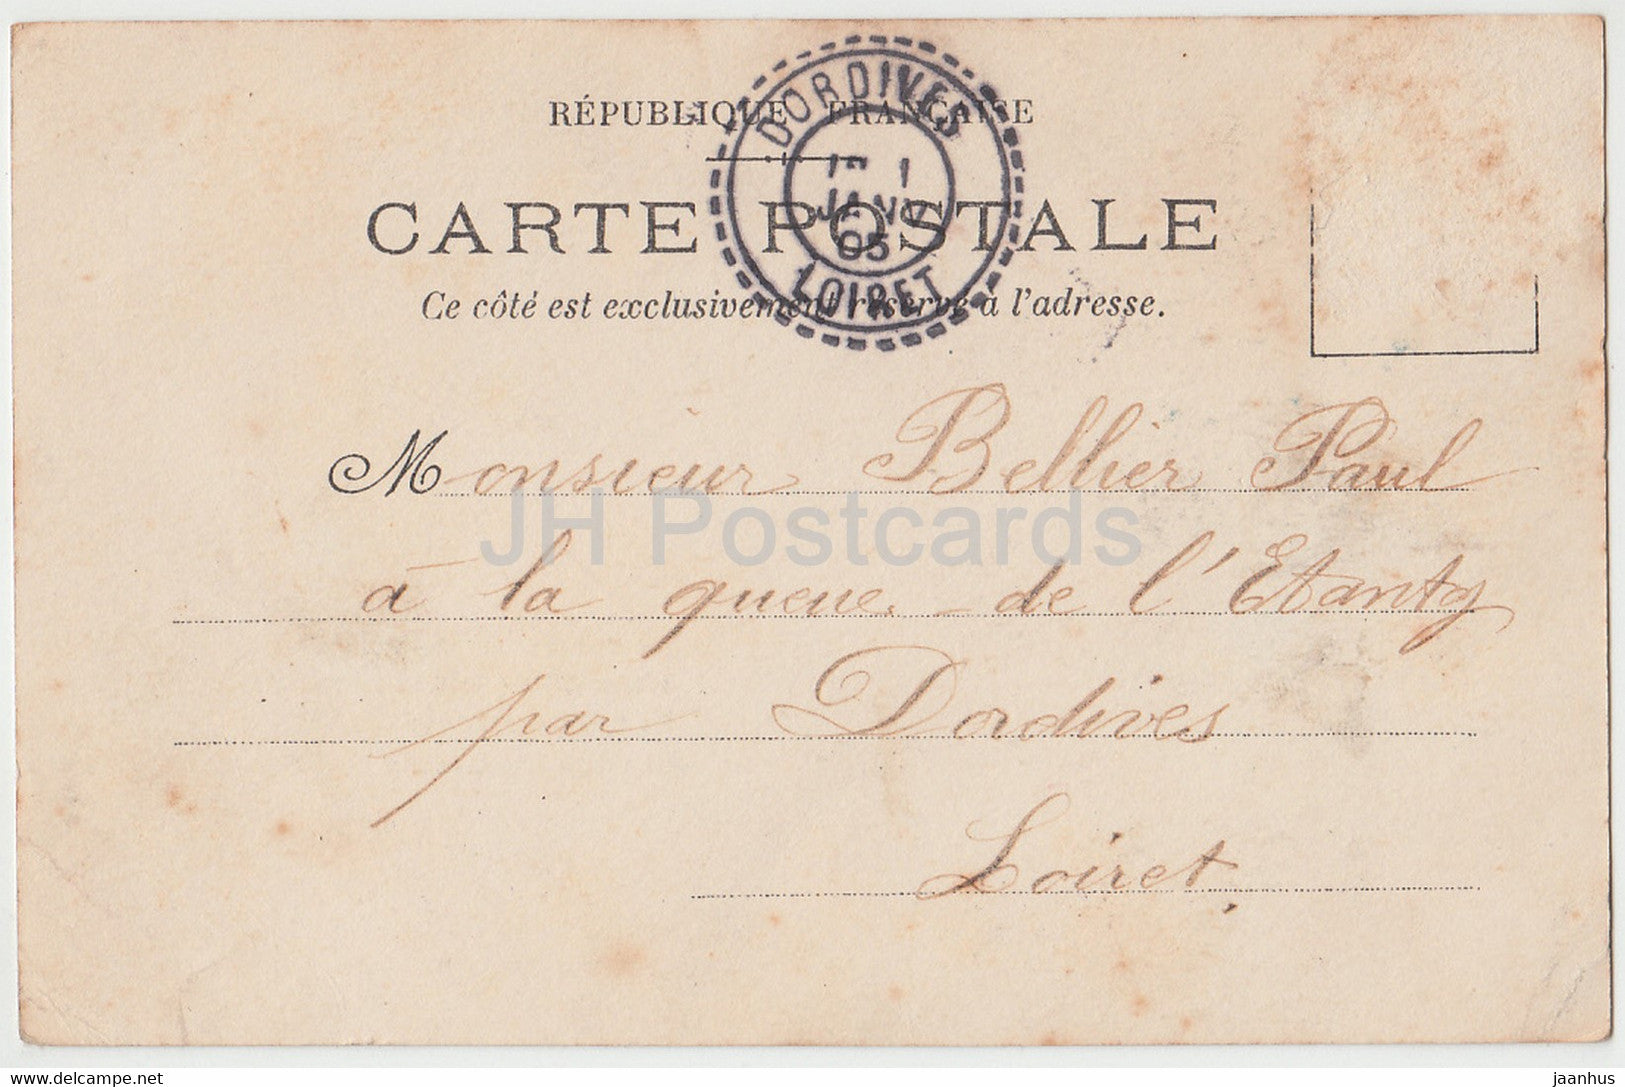 RÉPUBLIQUE FRANÇAISE
DORDIVES
1
JANV
05
LOIRET
CARTE POSTALE
Ce côté est exclusivement réservé à l'adresse.
Monsieur Bellier Paul
à la queue - de l'Etanty
par Dordives
Loiret
JH Postcards
delcampe.net
jaanhus